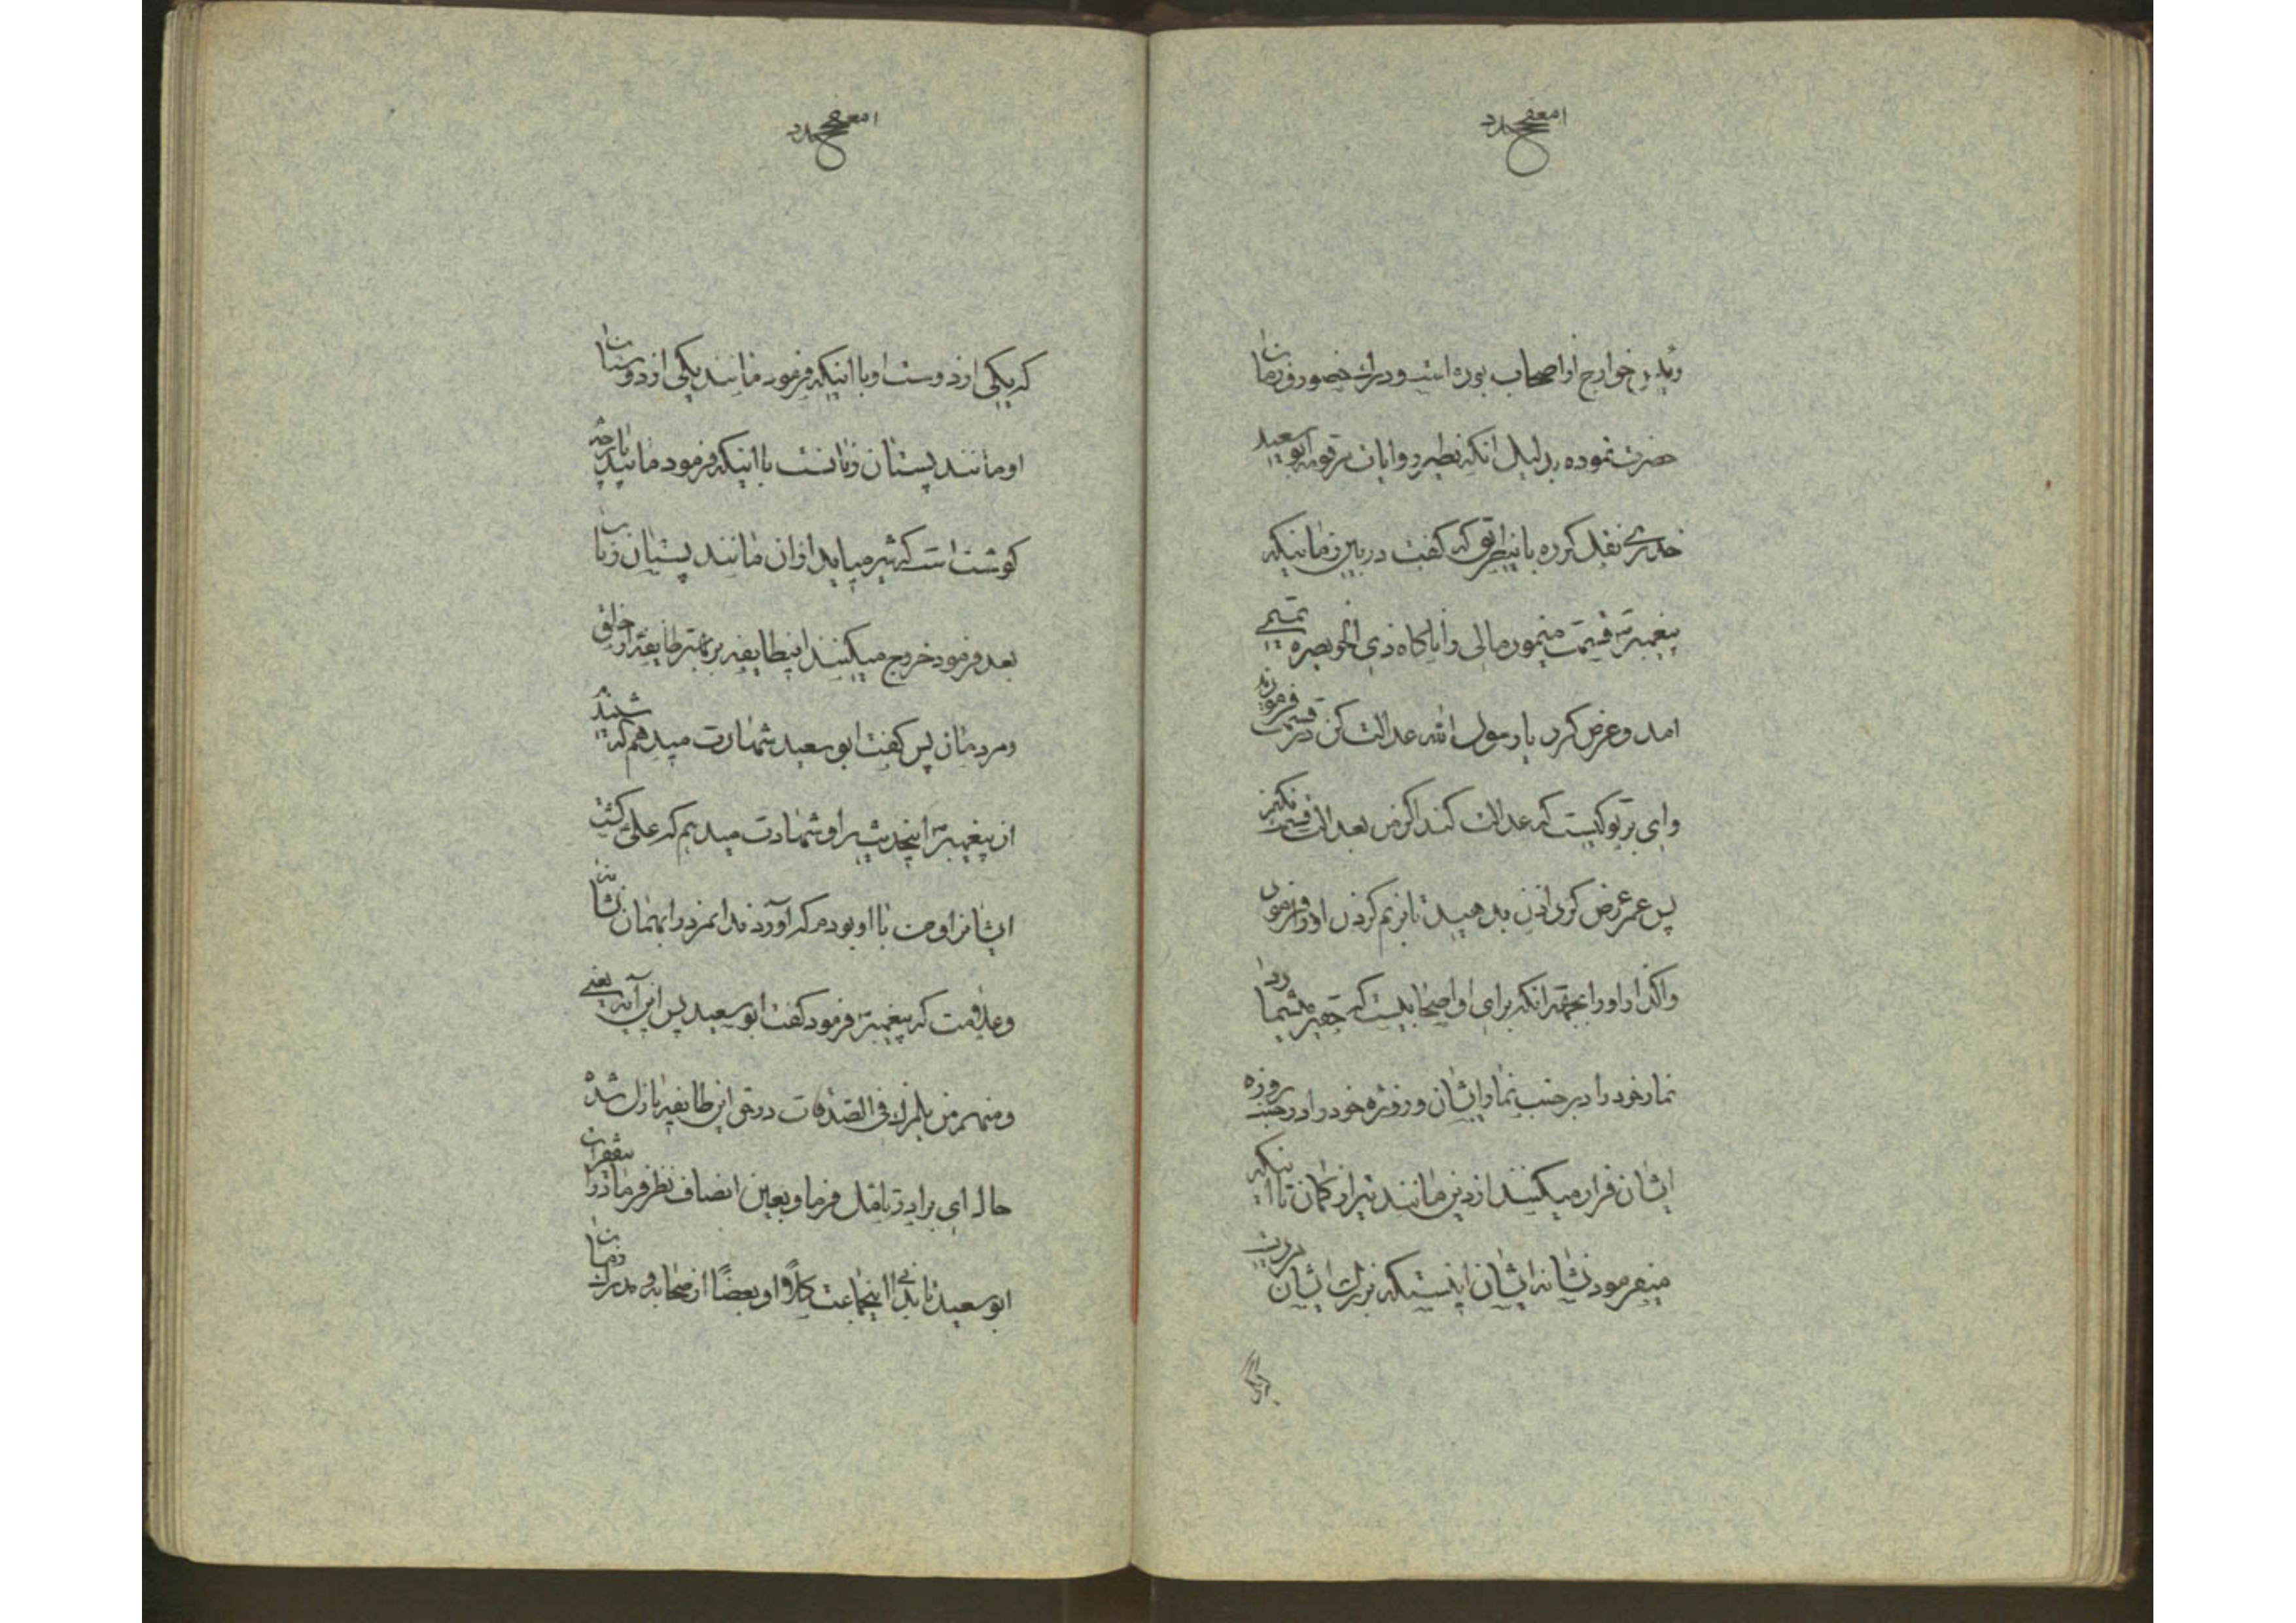 خوارج از اصحاب بوده است و درک حضور و زمان
حضرت نموده بدلیل انکه نظیر روایات مرقومه ابوسعید
خدری نقل کرده باینطریق که گفت در بین زمانیکه
پیغمبر ص قسمت مینمود مالی را ناگاه ذی الخویصره تمیمی
امد و عرض کرد یا رسول الله عدالت کن در قسمت فرمودند
وای بر تو کیست که عدالت کند اگر من بعدالت قسمت نکنم
پس عمر عرض کرد اذن بدهید تا بزنم کردن او و فرمود
واگذار او را بجهة انکه برای او اصحابیست که حقیر میشمارد
نماز خود را در جنب نماز ایشان و روزه خود را در جنب روزه
ایشان فرار میکنند از دین مانند تیر از کمان تا اینکه
میفرمود نشانه ایشان اینستکه بزرک ایشان مردیست
که یکی از دو دست او یا اینکه فرمود مانند یکی از دو پستان
او مانند پستان زنانست یا اینکه فرمود مانند پارچه
کوشت است که شیر میاید از ان مانند پستان زنان
بعد فرمود خروج میکنند اینطایفه بر بهتر طایفه از خلق
و مردمان پس گفت ابوسعید شهادت میدهم که شنیدم
از پیغمبر ص اینحدیث را و شهادت میدهم که علی ع کشت
ایشانرا و من با او بودم که آوردند انمرد را بهمان نشانه
و علامت که پیغمبر ص فرمود گفت ابوسعید پس این آیه یعنی
و منهم من یلمزک فی الصدقات در حق این طایفه نازل شد
حال ای برادر تامل فرما و بعین انصاف نظر فرما در فقرات
ابوسعید تا بدانی اینجماعت کلاً او بعضاً از صحابه و مدرک زمان